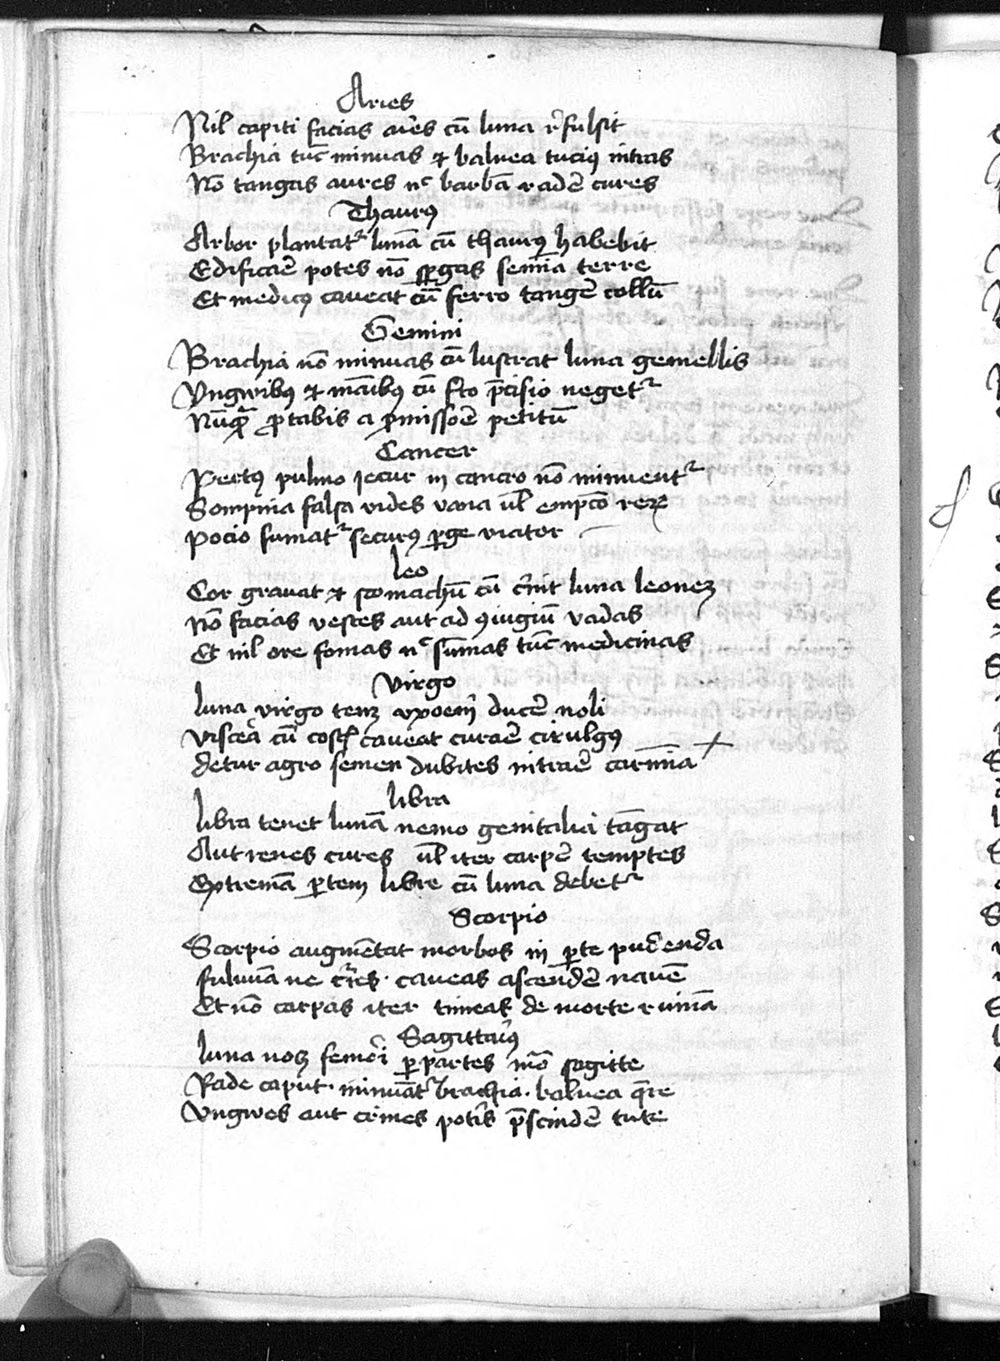 Aries
Nil capiti facias aries cū luna rͤfulsit
Brachia tūc minuas ⁊ balnea tuciꝰ intras
Nō tangas aures nͨ barbā radeē cures
Thaurꝰ
Arbor plantatᷣ lunā cū thaurꝰ habebit
Edificaē potes nō spͣgas semīa terre
Et medicꝰ caueat cū ferro tangeē collū
Gemini
Brachia nō minuas cū lustrat luna gemellis
Vnguibꝰ ⁊ māibꝰ cū fͬto p̄cisio negetᷣ
Nūqᷓ ꝓtabis a ꝓmissoē petitū
Cancer
Pectꝰ pulmo iecur in cancro nō minuentᷣ
Sompnia falsa vides vana ul̄ empcō rerꝫ
Pocio sumatᷣ securꝰ ꝑge viator
leo
Cor grauat ⁊ stomachū cū cͥnit luna leonem
Nō facias vestes aut ad ꝯiugiū vadas
Et nil ore fomas nͨ sūmas tūc medicinas
Virgo
luna virgo tenꝫ vxoem̄ duceē noli
visceͣa cū costꝭ caueat curaē cirulgꝰ
detur agro semen dubites intraē carinā
libra
libra tenet lunā nemo genitalia tāgat
Aut renes cures ul̄ iter carpeē temptes
Extremā ꝑtem libre cū luna debetᷣ
Scorpio
Scorpio augmētat morbos in ꝑte pudenda
fulnā ne cͬes · caueas ascendeē nauē
Et nō carpas iter timeas de morte ruinā
Sagittariꝰ
luna nocꝫ femoͬi ꝑ partes mō sagitte
Rade caput · minuātᷣ brachia · balnea q̄re
Vngwes aut cͥines potͥs p̄scindeē tute